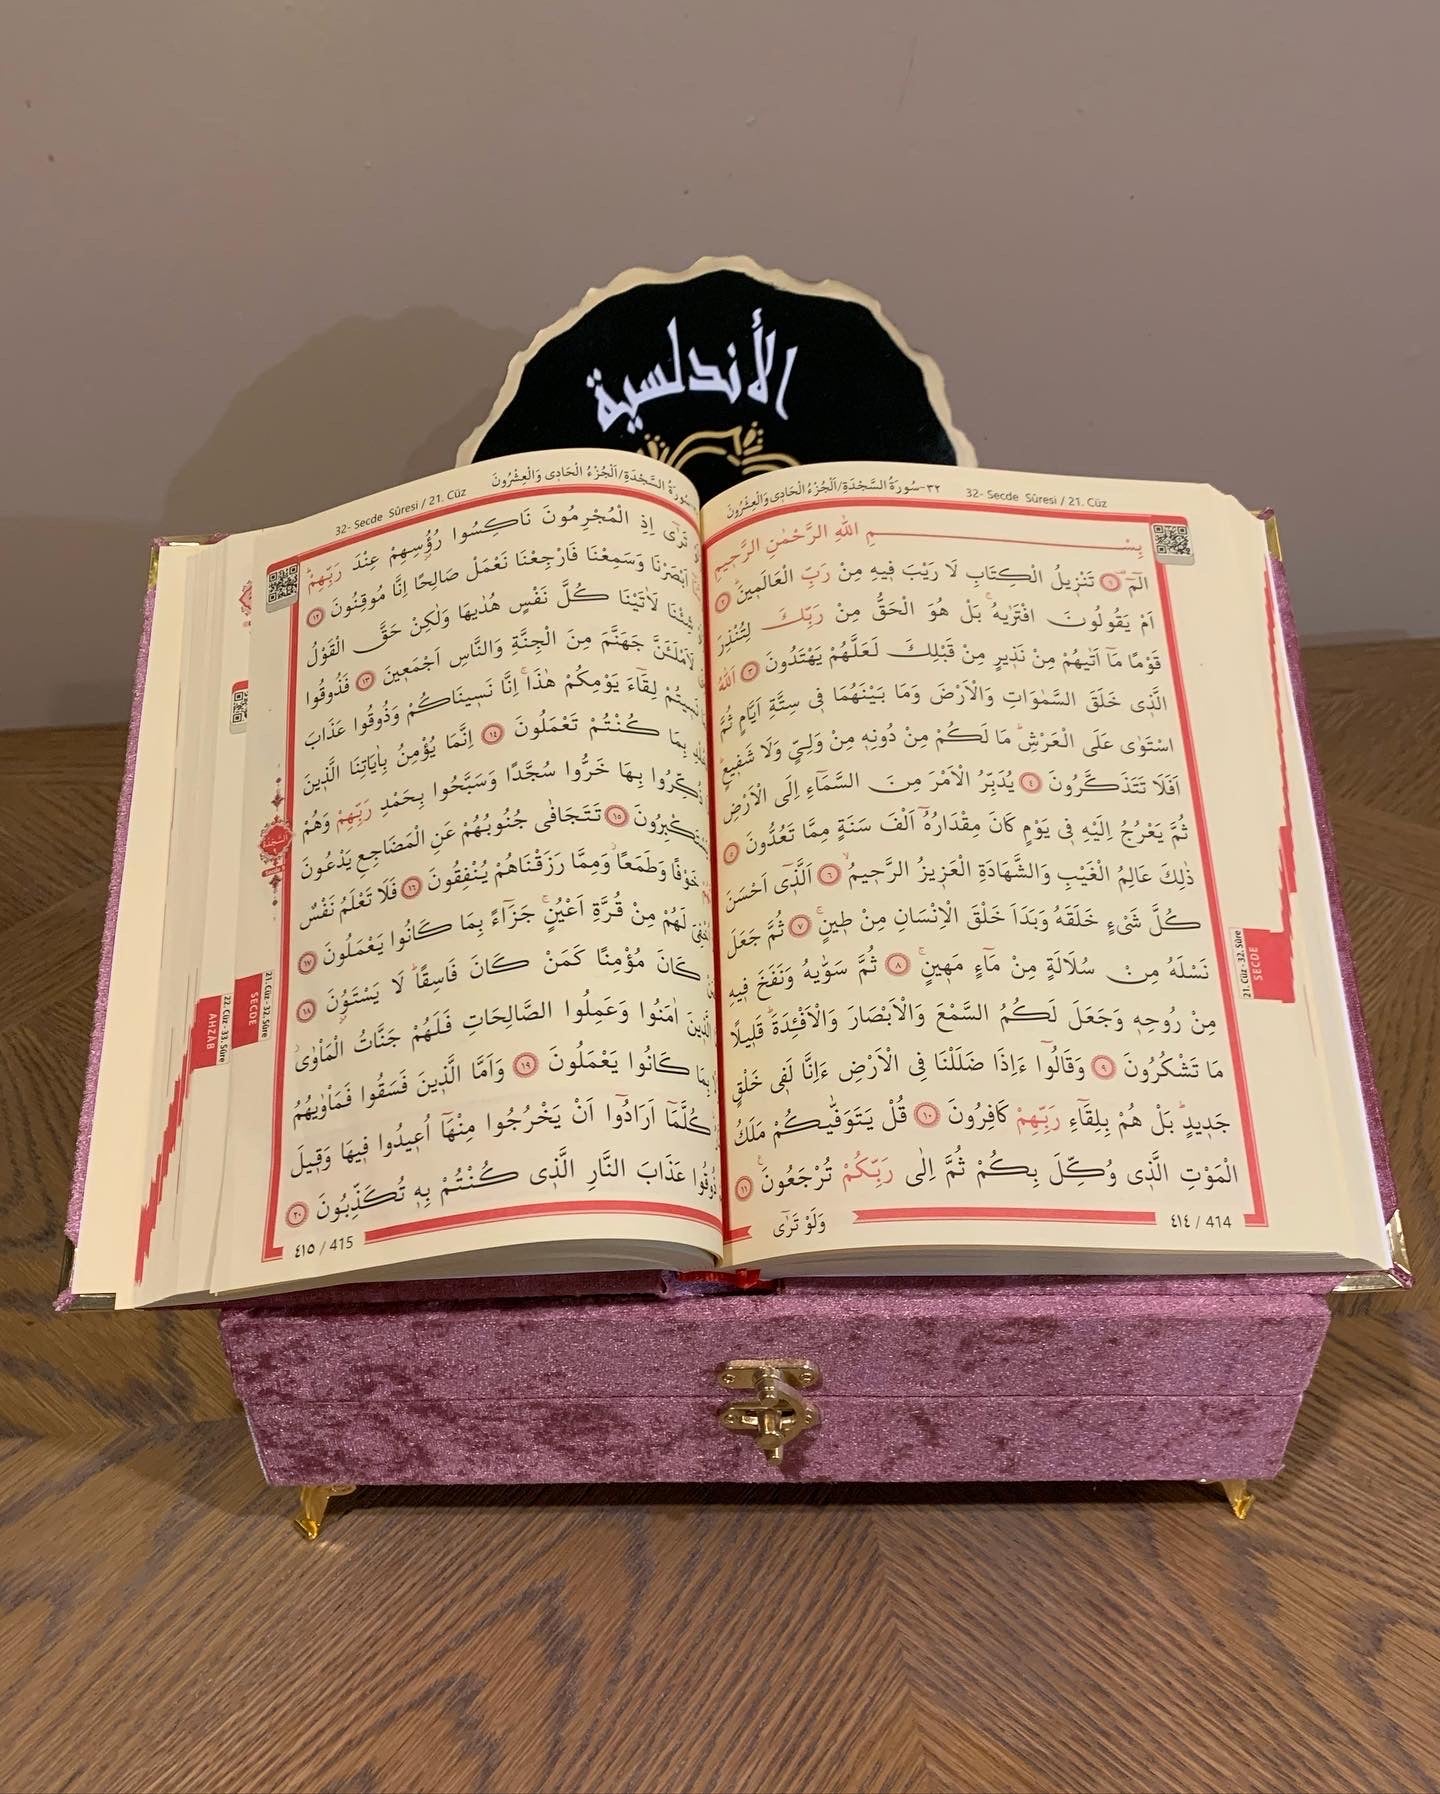 الأندلسية
٣٢-سُورَةُ السَّجْدَةِ/اَلْجُزْءُ الْحَادِى وَالْعِشْرُونَ 32- Secde Sûresi / 21. Cüz
بِسْــــــــمِ اللهِ الرَّحْمٰنِ الرَّحٖيمِ
الٓمٓ ۚ ١ تَنْزٖيلُ الْكِتَابِ لَا رَيْبَ فٖيهِ مِنْ رَبِّ الْعَالَمٖينَ ؕ ٢
اَمْ يَقُولُونَ افْتَرٰيهُ ۚ بَلْ هُوَ الْحَقُّ مِنْ رَبِّكَ لِتُنْذِرَ
قَوْمًا مَٓا اَتٰيهُمْ مِنْ نَذٖيرٍ مِنْ قَبْلِكَ لَعَلَّهُمْ يَهْتَدُونَ ٣ اَللهُ
الَّذٖى خَلَقَ السَّمٰوَاتِ وَالْاَرْضَ وَمَا بَيْنَهُمَا فٖى سِتَّةِ اَيَّامٍ ثُمَّ
اسْتَوٰى عَلَى الْعَرْشِ ؕ مَا لَكُمْ مِنْ دُونِهٖ مِنْ وَلِىٍّ وَلَا شَفٖيعٍ ؕ
اَفَلَا تَتَذَكَّرُونَ ٤ يُدَبِّرُ الْاَمْرَ مِنَ السَّمَٓاءِ اِلَى الْاَرْضِ
ثُمَّ يَعْرُجُ اِلَيْهِ فٖى يَوْمٍ كَانَ مِقْدَارُهُٓ اَلْفَ سَنَةٍ مِمَّا تَعُدُّونَ ٥
ذٰلِكَ عَالِمُ الْغَيْبِ وَالشَّهَادَةِ الْعَزٖيزُ الرَّحٖيمُ ۙ ٦ اَلَّذٖٓى اَحْسَنَ
كُلَّ شَىْءٍ خَلَقَهُ وَبَدَاَ خَلْقَ الْاِنْسَانِ مِنْ طٖينٍ ۚ ٧ ثُمَّ جَعَلَ
نَسْلَهُ مِنْ سُلَالَةٍ مِنْ مَٓاءٍ مَهٖينٍ ۚ ٨ ثُمَّ سَوّٰيهُ وَنَفَخَ فٖيهِ
مِنْ رُوحِهٖ وَجَعَلَ لَكُمُ السَّمْعَ وَالْاَبْصَارَ وَالْاَفْـِٔدَةَ ؕ قَلٖيلًا
مَا تَشْكُرُونَ ٩ وَقَالُٓوا ءَاِذَا ضَلَلْنَا فِى الْاَرْضِ ءَاِنَّا لَفٖى خَلْقٍ
جَدٖيدٍ ؕ بَلْ هُمْ بِلِقَٓاءِ رَبِّهِمْ كَافِرُونَ ١٠ قُلْ يَتَوَفّٰيكُمْ مَلَكُ
الْمَوْتِ الَّذٖى وُكِّلَ بِكُمْ ثُمَّ اِلٰى رَبِّكُمْ تُرْجَعُونَ ۚ ١١
وَلَوْ تَرٰٓى
٤١٤ / 414
21. Cüz - 32. Sûre
SECDE
سُورَةُ السَّجْدَةِ/اَلْجُزْءُ الْحَادِى وَالْعِشْرُونَ 32- Secde Sûresi / 21. Cüz
تَرٰٓى اِذِ الْمُجْرِمُونَ نَاكِسُوا رُؤُ۫سِهِمْ عِنْدَ رَبِّهِمْ ؕ
اَبْصَرْنَا وَسَمِعْنَا فَارْجِعْنَا نَعْمَلْ صَالِحًا اِنَّا مُوقِنُونَ ١٢
شِئْنَا لَاٰتَيْنَا كُلَّ نَفْسٍ هُدٰيهَا وَلٰكِنْ حَقَّ الْقَوْلُ
لَاَمْلَـَٔنَّ جَهَنَّمَ مِنَ الْجِنَّةِ وَالنَّاسِ اَجْمَعٖينَ ١٣ فَذُوقُوا
نَسٖيتُمْ لِقَٓاءَ يَوْمِكُمْ هٰذَا ۚ اِنَّا نَسٖينَاكُمْ وَذُوقُوا عَذَابَ
بِمَا كُنْتُمْ تَعْمَلُونَ ١٤ اِنَّمَا يُؤْمِنُ بِاٰيَاتِنَا الَّذٖينَ
ذُكِّرُوا بِهَا خَرُّوا سُجَّدًا وَسَبَّحُوا بِحَمْدِ رَبِّهِمْ وَهُمْ
يَسْتَكْبِرُونَ ١٥ تَتَجَافٰى جُنُوبُهُمْ عَنِ الْمَضَاجِعِ يَدْعُونَ
خَوْفًا وَطَمَعًا ؗ وَمِمَّا رَزَقْنَاهُمْ يُنْفِقُونَ ١٦ فَلَا تَعْلَمُ نَفْسٌ
اُخْفِىَ لَهُمْ مِنْ قُرَّةِ اَعْيُنٍ ۚ جَزَٓاءً بِمَا كَانُوا يَعْمَلُونَ ١٧
كَانَ مُؤْمِنًا كَمَنْ كَانَ فَاسِقًا ؕ لَا يَسْتَوُ۫نَ ١٨
الَّذٖينَ اٰمَنُوا وَعَمِلُوا الصَّالِحَاتِ فَلَهُمْ جَنَّاتُ الْمَاْوٰى ؗ
بِمَا كَانُوا يَعْمَلُونَ ١٩ وَاَمَّا الَّذٖينَ فَسَقُوا فَمَاْوٰيهُمُ
كُلَّمَٓا اَرَادُٓوا اَنْ يَخْرُجُوا مِنْهَٓا اُعٖيدُوا فٖيهَا وَقٖيلَ
ذُوقُوا عَذَابَ النَّارِ الَّذٖى كُنْتُمْ بِهٖ تُكَذِّبُونَ ٢٠
٤١٥ / 415
السجدة
Secde
21. Cüz - 32. Sûre
SECDE
22. Cüz - 33. Sûre
AHZAB